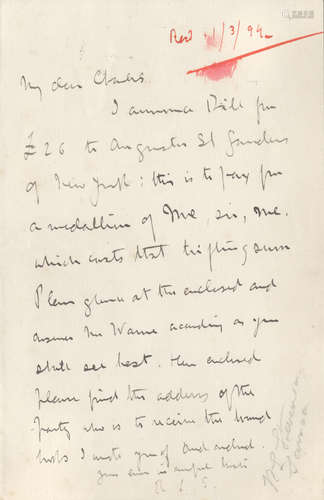 Recd 1/3/94
My dear Charles
I announce Bill for
£26 to Augustus St Gaudens
of New York: this is to pay for
a medallion of Me, sir, Me.
which costs that trifling sum
Please glance at the enclosed and
answer Mr Warne according as you
shall see best. Also enclosed
please find the address of the
party who is to receive this
books I wrote you of. And
yours ever in
R L S.
R L Stevenson
Samoa